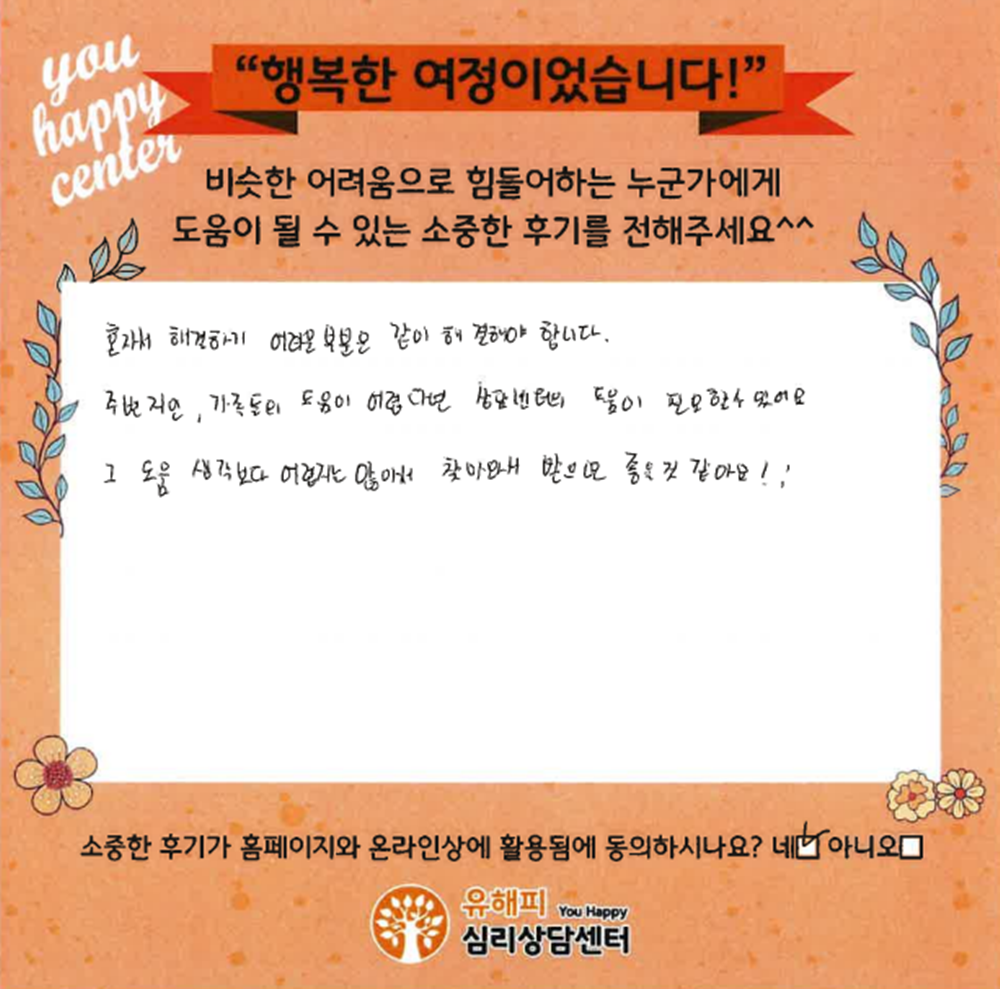 you
happy
center
“행복한 여정이었습니다!”
비슷한 어려움으로 힘들어하는 누군가에게
도움이 될 수 있는 소중한 후기를 전해주세요^^
혼자서 해결하기 어려운 부분은 같이 해결해야 합니다.
주변지인, 가족들의 도움이 어렵다면 상담센터의 도움이 필요할수있어요
그 도움 생각보다 어렵지는 않아서 찾아와서 받으면 좋을것 같아요!!
소중한 후기가 홈페이지와 온라인상에 활용됨에 동의하시나요? 네☑ 아니오☐
유해피 You Happy
심리상담센터